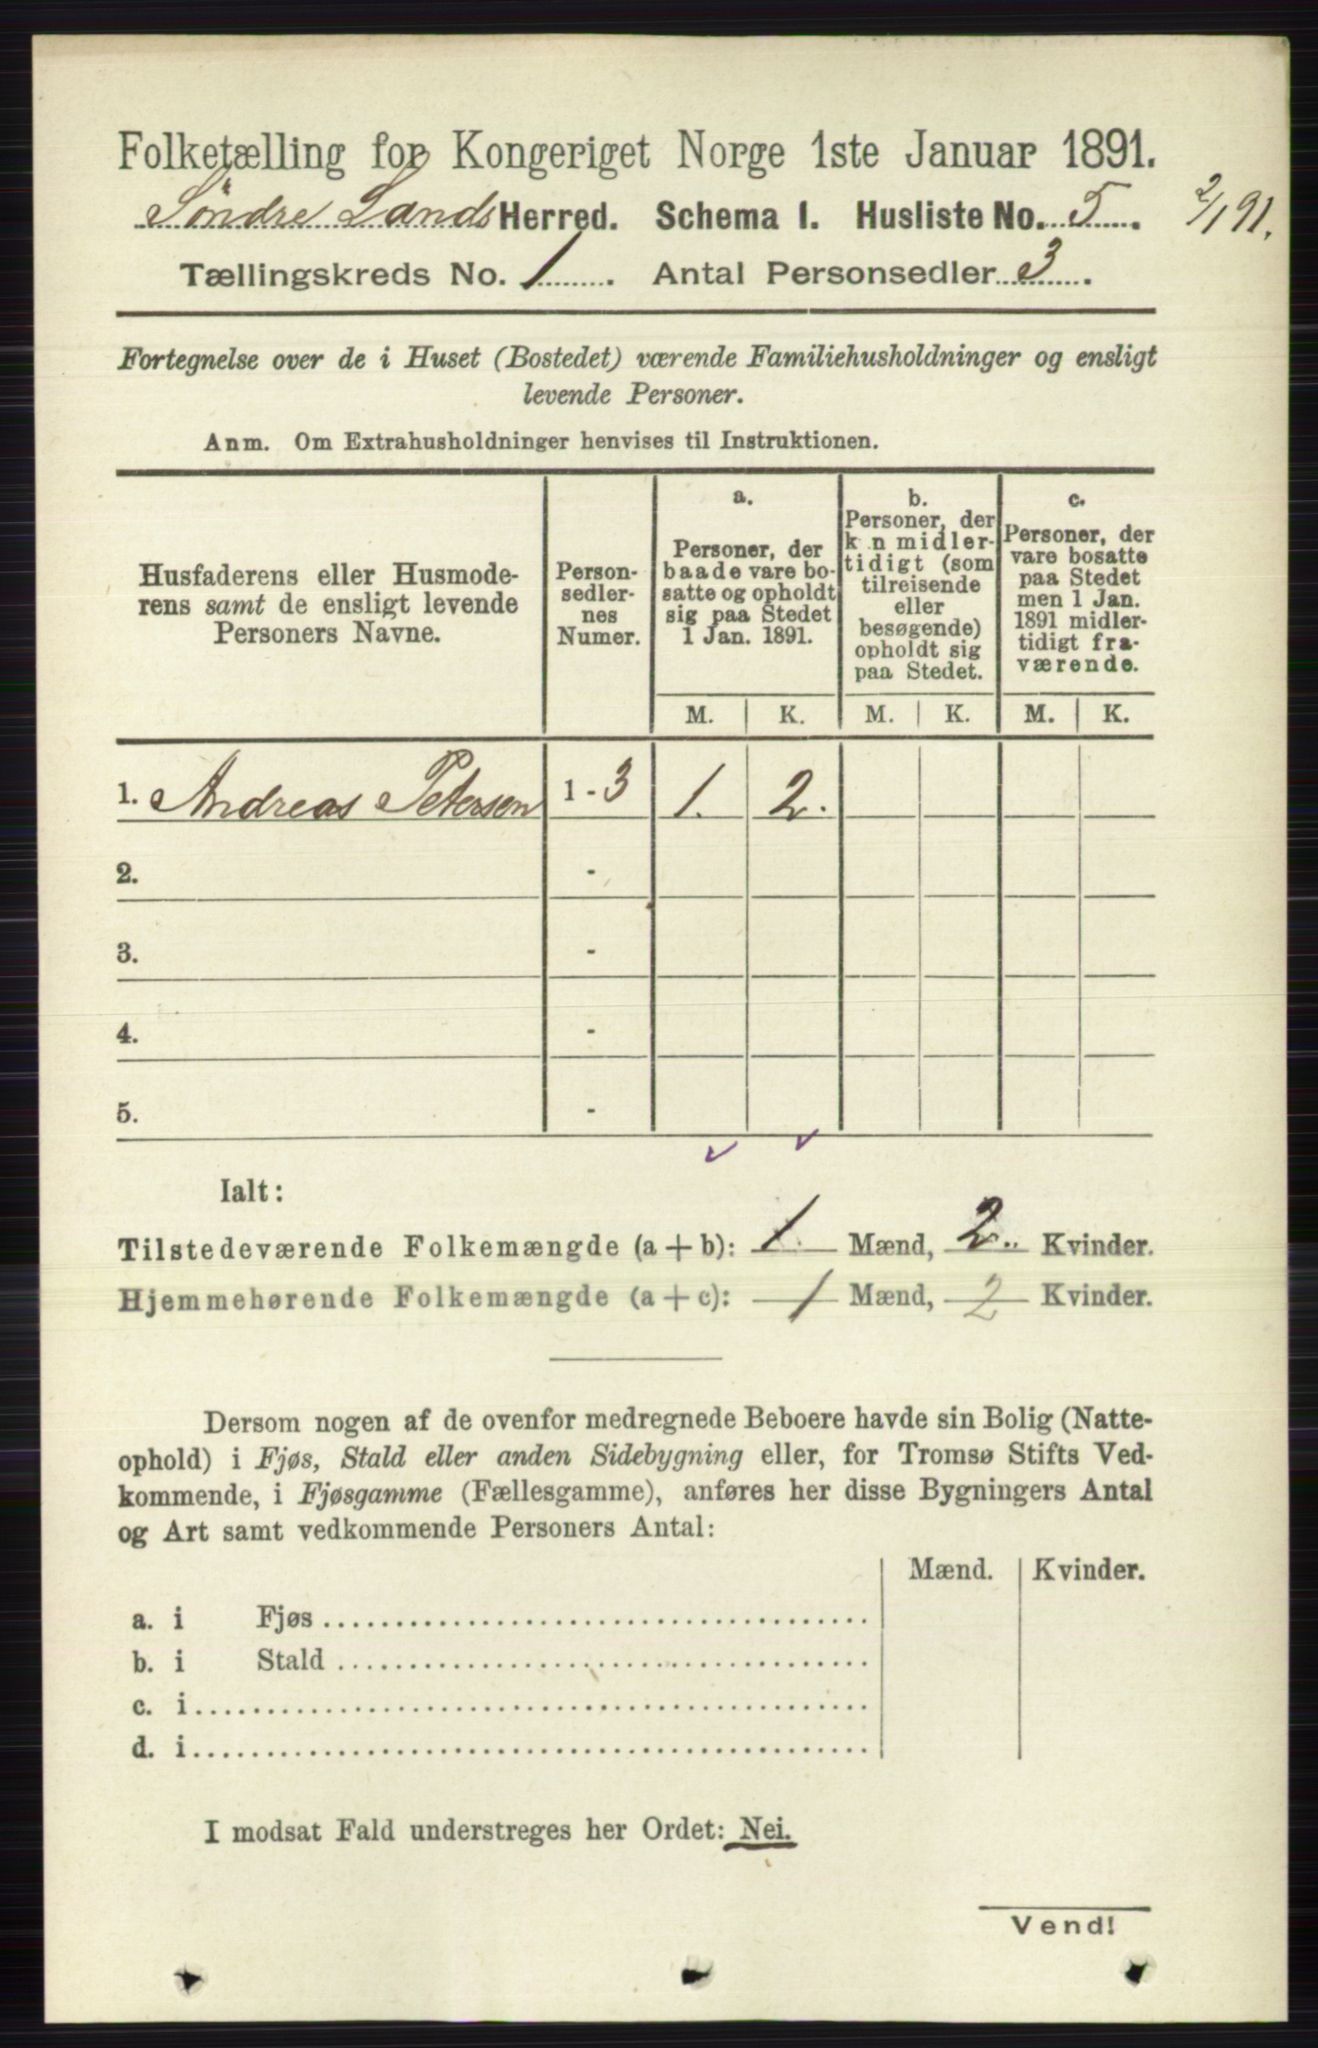 Folketælling for Kongeriget Norge 1ste Januar 1891.
Søndre Lands Herred. Schema I. Husliste No. 5. 2/1 91.
Tællingskreds No. 1. Antal Personsedler 3.
Fortegnelse over de i Huset (Bostedet) værende Familiehusholdninger og ensligt
levende Personer.
Anm. Om Extrahusholdninger henvises til Instruktionen.
Husfaderens eller Husmode-
rens samt de ensligt levende
Personers Navne.
Person-
sedler-
nes
Numer.
a.
Personer, der
baade vare bo-
satte og opholdt
sig paa Stedet
1 Jan. 1891.
b.
Personer, der
k n midler-
tidigt (som
tilreisende
eller
besøgende)
opholdt sig
paa Stedet.
c.
Personer, der
vare bosatte
paa Stedet
men 1 Jan.
1891 midler-
tidigt fra-
værende.
M. K. M. K. M. K.
1. Andreas Petersen 1 - 3 1. 2.
2. -
3. -
4. -
5. -
Ialt:
Tilstedeværende Folkemængde (a + b): 1. Mænd, 2. Kvinder.
Hjemmehørende Folkemængde (a + c): 1 Mænd, 2 Kvinder.
Dersom nogen af de ovenfor medregnede Beboere havde sin Bolig (Natte-
ophold) i Fjøs, Stald eller anden Sidebygning eller, for Tromsø Stifts Ved-
kommende, i Fjøsgamme (Fællesgamme), anføres her disse Bygningers Antal
og Art samt vedkommende Personers Antal:
Mænd. Kvinder.
a. i Fjøs
b. i Stald
c. i
d. i
I modsat Fald understreges her Ordet: Nei.
Vend!